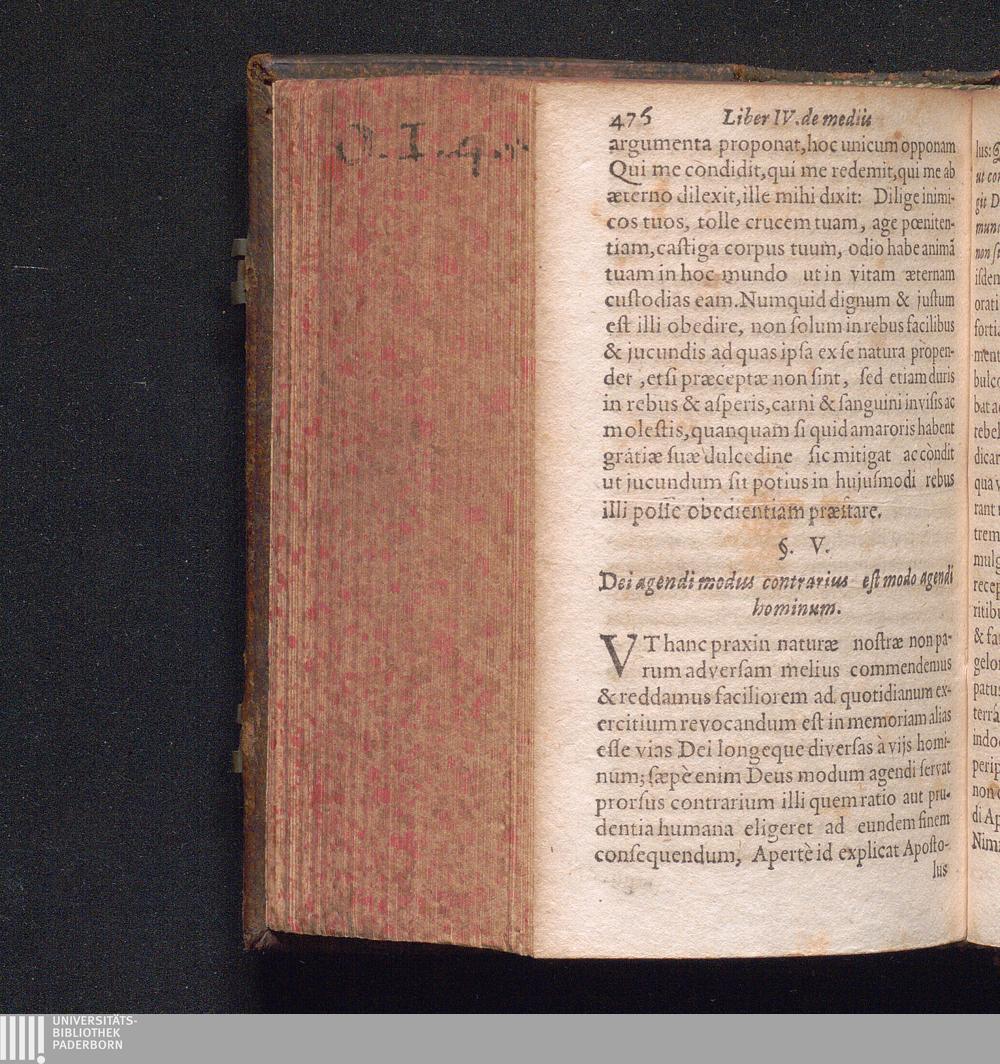 476 Liber IV. de mediis
argumenta proponat, hoc unicum opponam
Qui me condidit, qui me redemit, qui me ab
æterno dilexit, ille mihi dixit: Dilige inimi-
cos tuos, tolle crucem tuam, age pœniten-
tiam, castiga corpus tuum, odio habe animã
tuam in hoc mundo ut in vitam æternam
custodias eam. Numquid dignum & justum
est illi obedire, non solum in rebus facilibus
& jucundis ad quas ipsa ex se natura propen-
det, etsi præceptæ non sint, sed etiam duris
in rebus & asperis, carni & sanguini invisis ac
molestis, quanquam si quid amaroris habent
gratiæ suæ dulcedine sic mitigat ac condit
ut jucundum sit potius in hujusmodi rebus
illi posse obedientiam præstare.
§. V.
Dei agendi modus contrarius est modo agendi
hominum.
VT hanc praxin naturæ nostræ non pa-
rum adversam melius commendemus
& reddamus faciliorem ad quotidianum ex-
ercitium revocandum est in memoriam alias
esse vias Dei longeque diversas à vijs homi-
num; sæpè enim Deus modum agendi servat
prorsus contrarium illi quem ratio aut pru-
dentia humana eligeret ad eundem finem
consequendum, Apertè id explicat Aposto-
lus
lus:
ut con
git D
mund
non
isdem
orati
fortia
ment
bulc
bat a
rebel
dicar
qua v
rant
trem
mulg
recep
ritibu
& fa
gelo
patus
terrá
indo
perip
non
di Ap
Nim
UNIVERSITÄTS-
BIBLIOTHEK
PADERBORN